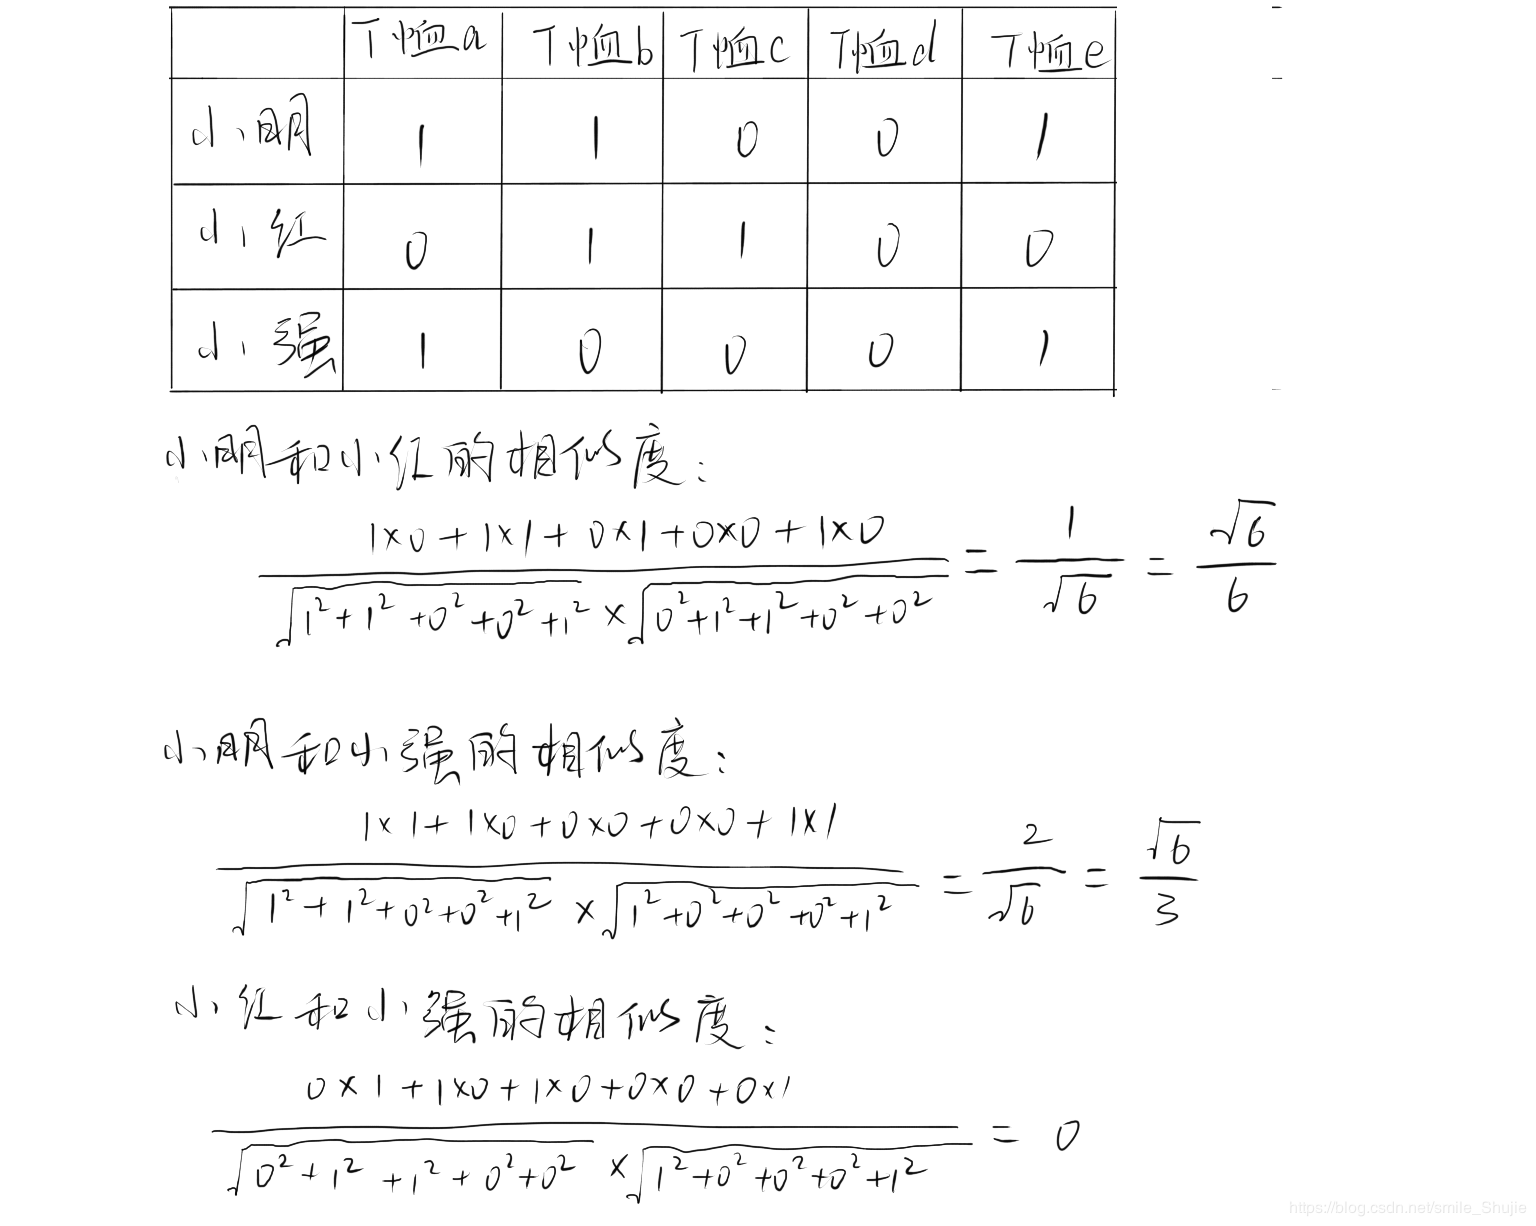 T恤a T恤b T恤c T恤d T恤e
小明 1 1 0 0 1
小红 0 1 1 0 0
小强 1 0 0 0 1
小明和小红的相似度:
1×0+1×1+0×1+0×0+1×0
= 1/√6 = √6/6
√1²+1²+0²+0²+1² × √0²+1²+1²+0²+0²
小明和小强的相似度:
1×1+1×0+0×0+0×0+1×1
= 2/√6 = √6/3
√1²+1²+0²+0²+1² × √1²+0²+0²+0²+1²
小红和小强的相似度:
0×1+1×0+1×0+0×0+0×1
= 0
√0²+1²+1²+0²+0² × √1²+0²+0²+0²+1²
https://blog.csdn.net/smile_Shujie